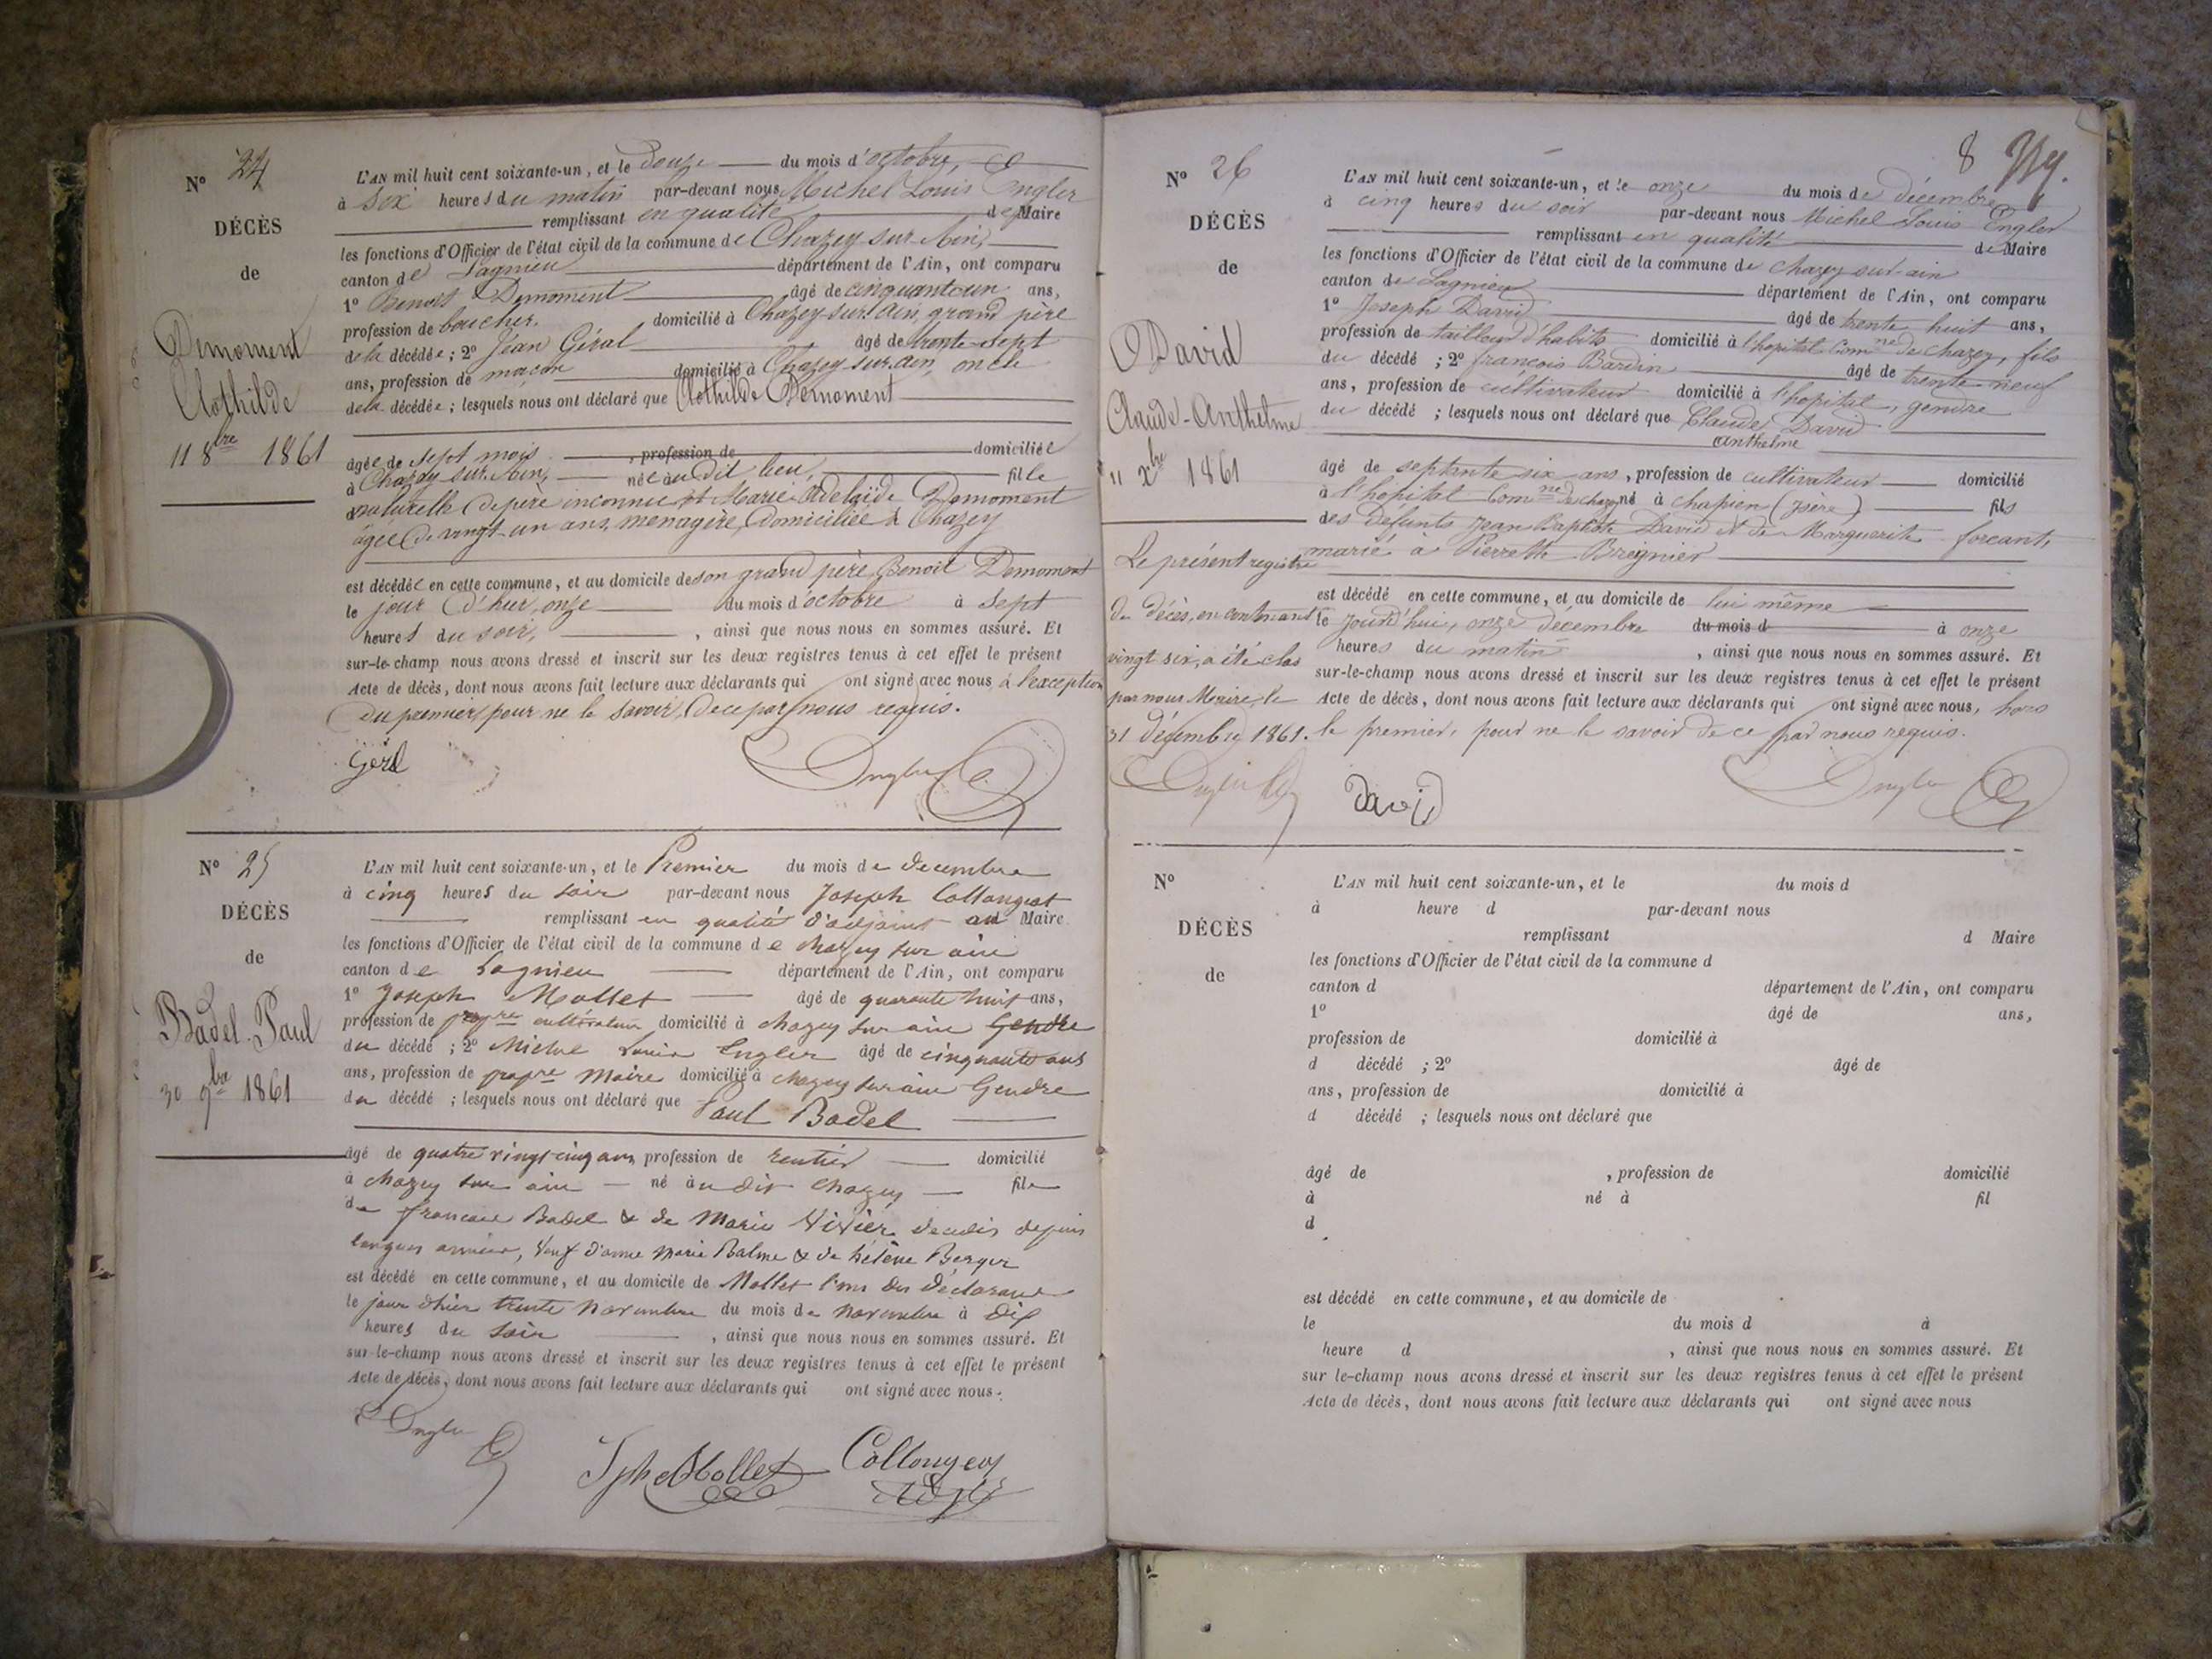 N° 24
DÉCÈS
de
Demoment
Clothilde
11 8bre 1861
L'AN mil huit cent soixante-un, et le Douze du mois d'octobre,
à Six heures du matin par-devant nous Michel Louis Engler
remplissant en qualité de Maire
les fonctions d'Officier de l'état civil de la commune de Chazey-sur-Ain,
canton de Lagnieu département de l'Ain, ont comparu
1° Benoit Demoment âgé de cinquante un ans,
profession de boucher, domicilié à Chazey-sur-Ain, grand père
de la décédée ; 2° Jean Géral âgé de trente-sept
ans, profession de maçon domicilié à Chazey-sur-Ain, oncle
de la décédée ; lesquels nous ont déclaré que Clothilde Demoment
âgée de sept mois , profession de domiciliée
à Chazey-sur-Ain, née au dit lieu, fille
naturelle de père inconnu et Marie Adelaïde Demoment
âgée de vingt-un ans, menagère, domiciliée à Chazey
est décédée en cette commune, et au domicile de son grand père, Benoit Demoment
le jour d'hier, onze du mois d'octobre à Sept
heures du soir, , ainsi que nous nous en sommes assuré. Et
sur-le-champ nous avons dressé et inscrit sur les deux registres tenus à cet effet le présent
Acte de décès, dont nous avons fait lecture aux déclarants qui ont signé avec nous, à l'exception
du premier, pour ne le savoir, de ce par nous requis.
Engler
N° 25
DÉCÈS
de
Badel Paul
30 9bre 1861
L'AN mil huit cent soixante-un, et le Premier du mois de decembre
à cinq heures du soir par-devant nous Joseph Collongeat
remplissant en qualité d'adjoint au Maire
les fonctions d'Officier de l'état civil de la commune de chazey sur ain
canton de Lagnieu département de l'Ain, ont comparu
1° Joseph Mollet âgé de quarante huit ans,
profession de propre cultivateur domicilié à chazey sur ain Gendre
du décédé ; 2° Michel Louis Engler âgé de cinquante ans
ans, profession de propre Maire domicilié à chazey sur ain Gendre
du décédé ; lesquels nous ont déclaré que Paul Badel
âgé de quatre vingt cinq ans profession de rentier domicilié
à chazey sur ain né au dit chazey fils
de francois Badel & de Marie Vivier decedés depuis
longues années, Veuf d'anne Marie Balme & de hélène Berger
est décédé en cette commune, et au domicile de Mollet l'un des déclarans
le jour dhier trente novembre du mois de novembre à dix
heures du soir , ainsi que nous nous en sommes assuré. Et
sur-le-champ nous avons dressé et inscrit sur les deux registres tenus à cet effet le présent
Acte de décès, dont nous avons fait lecture aux déclarants qui ont signé avec nous.
Engler
Jph Mollet Collongeat
8
N° 26
DÉCÈS
de
David
Claude-Anthelme
11 Xbre 1861
L'AN mil huit cent soixante-un, et le onze du mois de décembre
à cinq heures du soir par-devant nous Michel Louis Engler
remplissant en qualité de Maire
les fonctions d'Officier de l'état civil de la commune de chazey-sur-ain
canton de Lagnieu département de l'Ain, ont comparu
1° Joseph David âgé de trente huit ans,
profession de tailleur d'habits domicilié à l'hopital Comne de chazey, fils
du décédé ; 2° françois Bardin âgé de trente neuf
ans, profession de cultivateur domicilié à l'hopital, gendre
du décédé ; lesquels nous ont déclaré que Claude David
anthelme
âgé de septante six ans, profession de cultivateur domicilié
à l'hôpital Comne de chazey né à chapien (isère) fils
des défunts Jean Baptiste David et de Marguerite forcant,
marié à Pierrette Breignier
est décédé en cette commune, et au domicile de lui même
le jourd'hui, onze décembre du mois d à onze
heures du matin , ainsi que nous nous en sommes assuré. Et
sur-le-champ nous avons dressé et inscrit sur les deux registres tenus à cet effet le présent
Acte de décès, dont nous avons fait lecture aux déclarants qui ont signé avec nous, hors
le premier, pour ne le savoir de ce par nous requis.
Le présent registre
de décès, en contenant
vingt six, a été clos
par nous Maire, le
31 décembre 1861.
Engler David Engler
N°
DÉCÈS
de
L'AN mil huit cent soixante-un, et le du mois d
à heure d par-devant nous
remplissant d Maire
les fonctions d'Officier de l'état civil de la commune d
canton d département de l'Ain, ont comparu
1° âgé de ans,
profession de domicilié à
d décédé ; 2° âgé de
ans, profession de domicilié à
d décédé ; lesquels nous ont déclaré que
âgé de , profession de domicilié
à né à fil
d
est décédé en cette commune, et au domicile de
le du mois d à
heure d , ainsi que nous nous en sommes assuré. Et
sur le-champ nous avons dressé et inscrit sur les deux registres tenus à cet effet le présent
Acte de décès, dont nous avons fait lecture aux déclarants qui ont signé avec nous